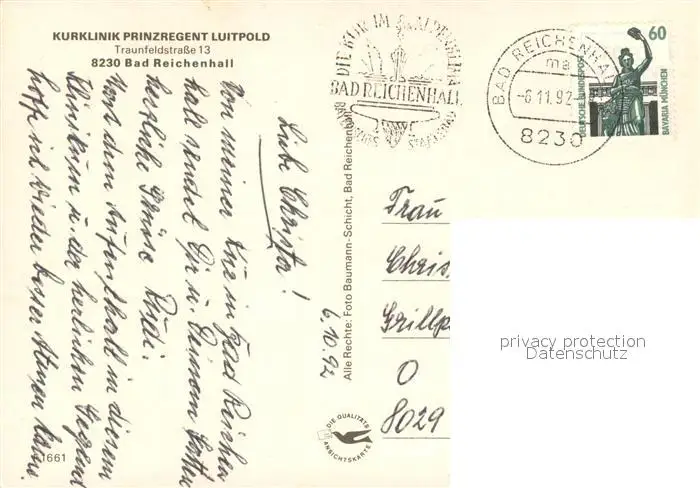 KURKLINIK PRINZREGENT LUITPOLD
Traunfeldstraße 13
8230 Bad Reichenhall
DIE KUR IM
BAD REICHENHALL
BAYERISCHES STAATSBAD
BAD REICHENHALL
ma
-6.11.92-
8230
60
DEUTSCHE BUNDESPOST
BAVARIA MÜNCHEN
6.10.92
Liebe Christa!
Von meiner Kur in Bad Reichen
hall sendet Dir u. Deinem
herzliche Grüsse Rudi.
Von dem Aufenthalt in diesem
Klinikum u. der herrlichen Gegend
hoffe ich wieder besser Atmen
Alle Rechte: Foto Baumann-Schicht, Bad Reichenhall
Frau
Chris
Grillp
O
8029
DIE QUALITÄTS
ANSICHTSKARTE
1661
privacy protection
Datenschutz